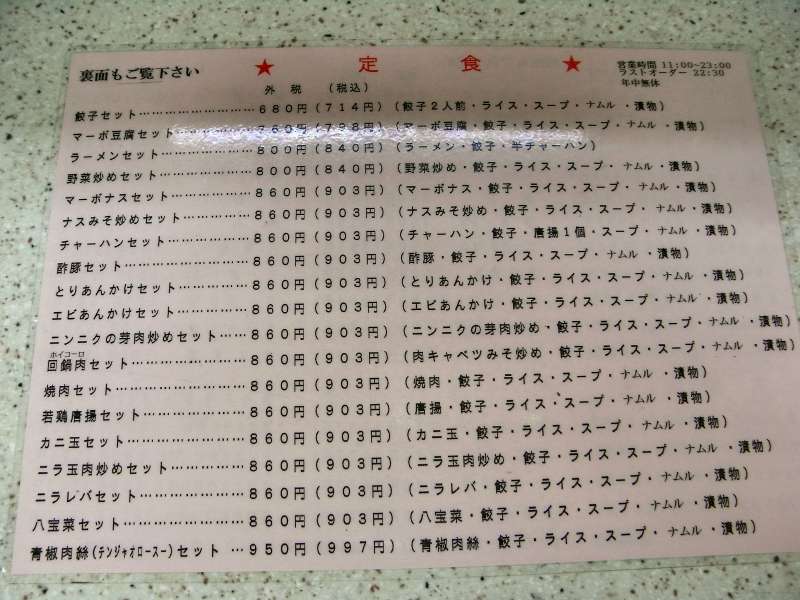 裏面もご覧下さい
★ 定食 ★
営業時間 11:00~23:00
ラストオーダー 22:30
年中無休
外税 (税込)
餃子セット……………………680円(714円) (餃子2人前・ライス・スープ・ナムル・漬物)
マーボ豆腐セット……………760円(798円) (マーボ豆腐・餃子・ライス・スープ・ナムル・漬物)
ラーメンセット………………800円(840円) (ラーメン・餃子・半チャーハン)
野菜炒めセット………………800円(840円) (野菜炒め・餃子・ライス・スープ・ナムル・漬物)
マーボナスセット……………860円(903円) (マーボナス・餃子・ライス・スープ・ナムル・漬物)
ナスみそ炒めセット…………860円(903円) (ナスみそ炒め・餃子・ライス・スープ・ナムル・漬物)
チャーハンセット……………860円(903円) (チャーハン・餃子・唐揚1個・スープ・ナムル・漬物)
酢豚セット……………………860円(903円) (酢豚・餃子・ライス・スープ・ナムル・漬物)
とりあんかけセット…………860円(903円) (とりあんかけ・餃子・ライス・スープ・ナムル・漬物)
エビあんかけセット…………860円(903円) (エビあんかけ・餃子・ライス・スープ・ナムル・漬物)
ニンニクの芽肉炒めセット……860円(903円) (ニンニクの芽肉炒め・餃子・ライス・スープ・ナムル・漬物)
ホイコーロ
回鍋肉セット…………………860円(903円) (肉キャベツみそ炒め・餃子・ライス・スープ・ナムル・漬物)
焼肉セット……………………860円(903円) (焼肉・餃子・ライス・スープ・ナムル・漬物)
若鶏唐揚セット………………860円(903円) (唐揚・餃子・ライス・スープ・ナムル・漬物)
カニ玉セット…………………860円(903円) (カニ玉・餃子・ライス・スープ・ナムル・漬物)
ニラ玉肉炒めセット…………860円(903円) (ニラ玉肉炒め・餃子・ライス・スープ・ナムル・漬物)
ニラレバセット………………860円(903円) (ニラレバ・餃子・ライス・スープ・ナムル・漬物)
八宝菜セット…………………860円(903円) (八宝菜・餃子・ライス・スープ・ナムル・漬物)
青椒肉絲(チンジャオロースー)セット …950円(997円) (青椒肉絲・餃子・ライス・スープ・ナムル・漬物)